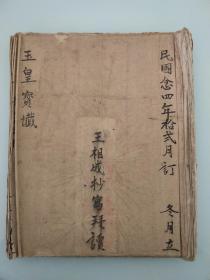 民國念四年拾弍月訂
冬月立
王相成抄寫拜讀
玉皇寶懺